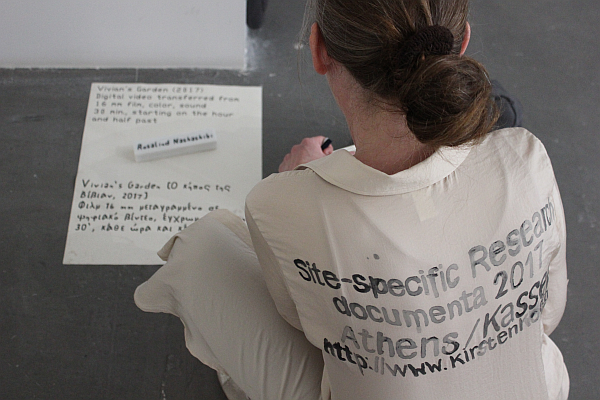 Vivian's Garden (2017)
Digital video transferred from
16 mm film, color, sound
30 min, starting on the hour
and half past
Rosalind Nashashibi
Vivian's Garden (Ο κήπος της
Βίβιαν, 2017)
Φιλμ 16 mm μεταγραμμένο σε
ψηφιακό βίντεο, έγχρωμο
30', κάθε ώρα και
Site-specific Research
documenta 2017
Athens/Kassel
http://www.Kirsten